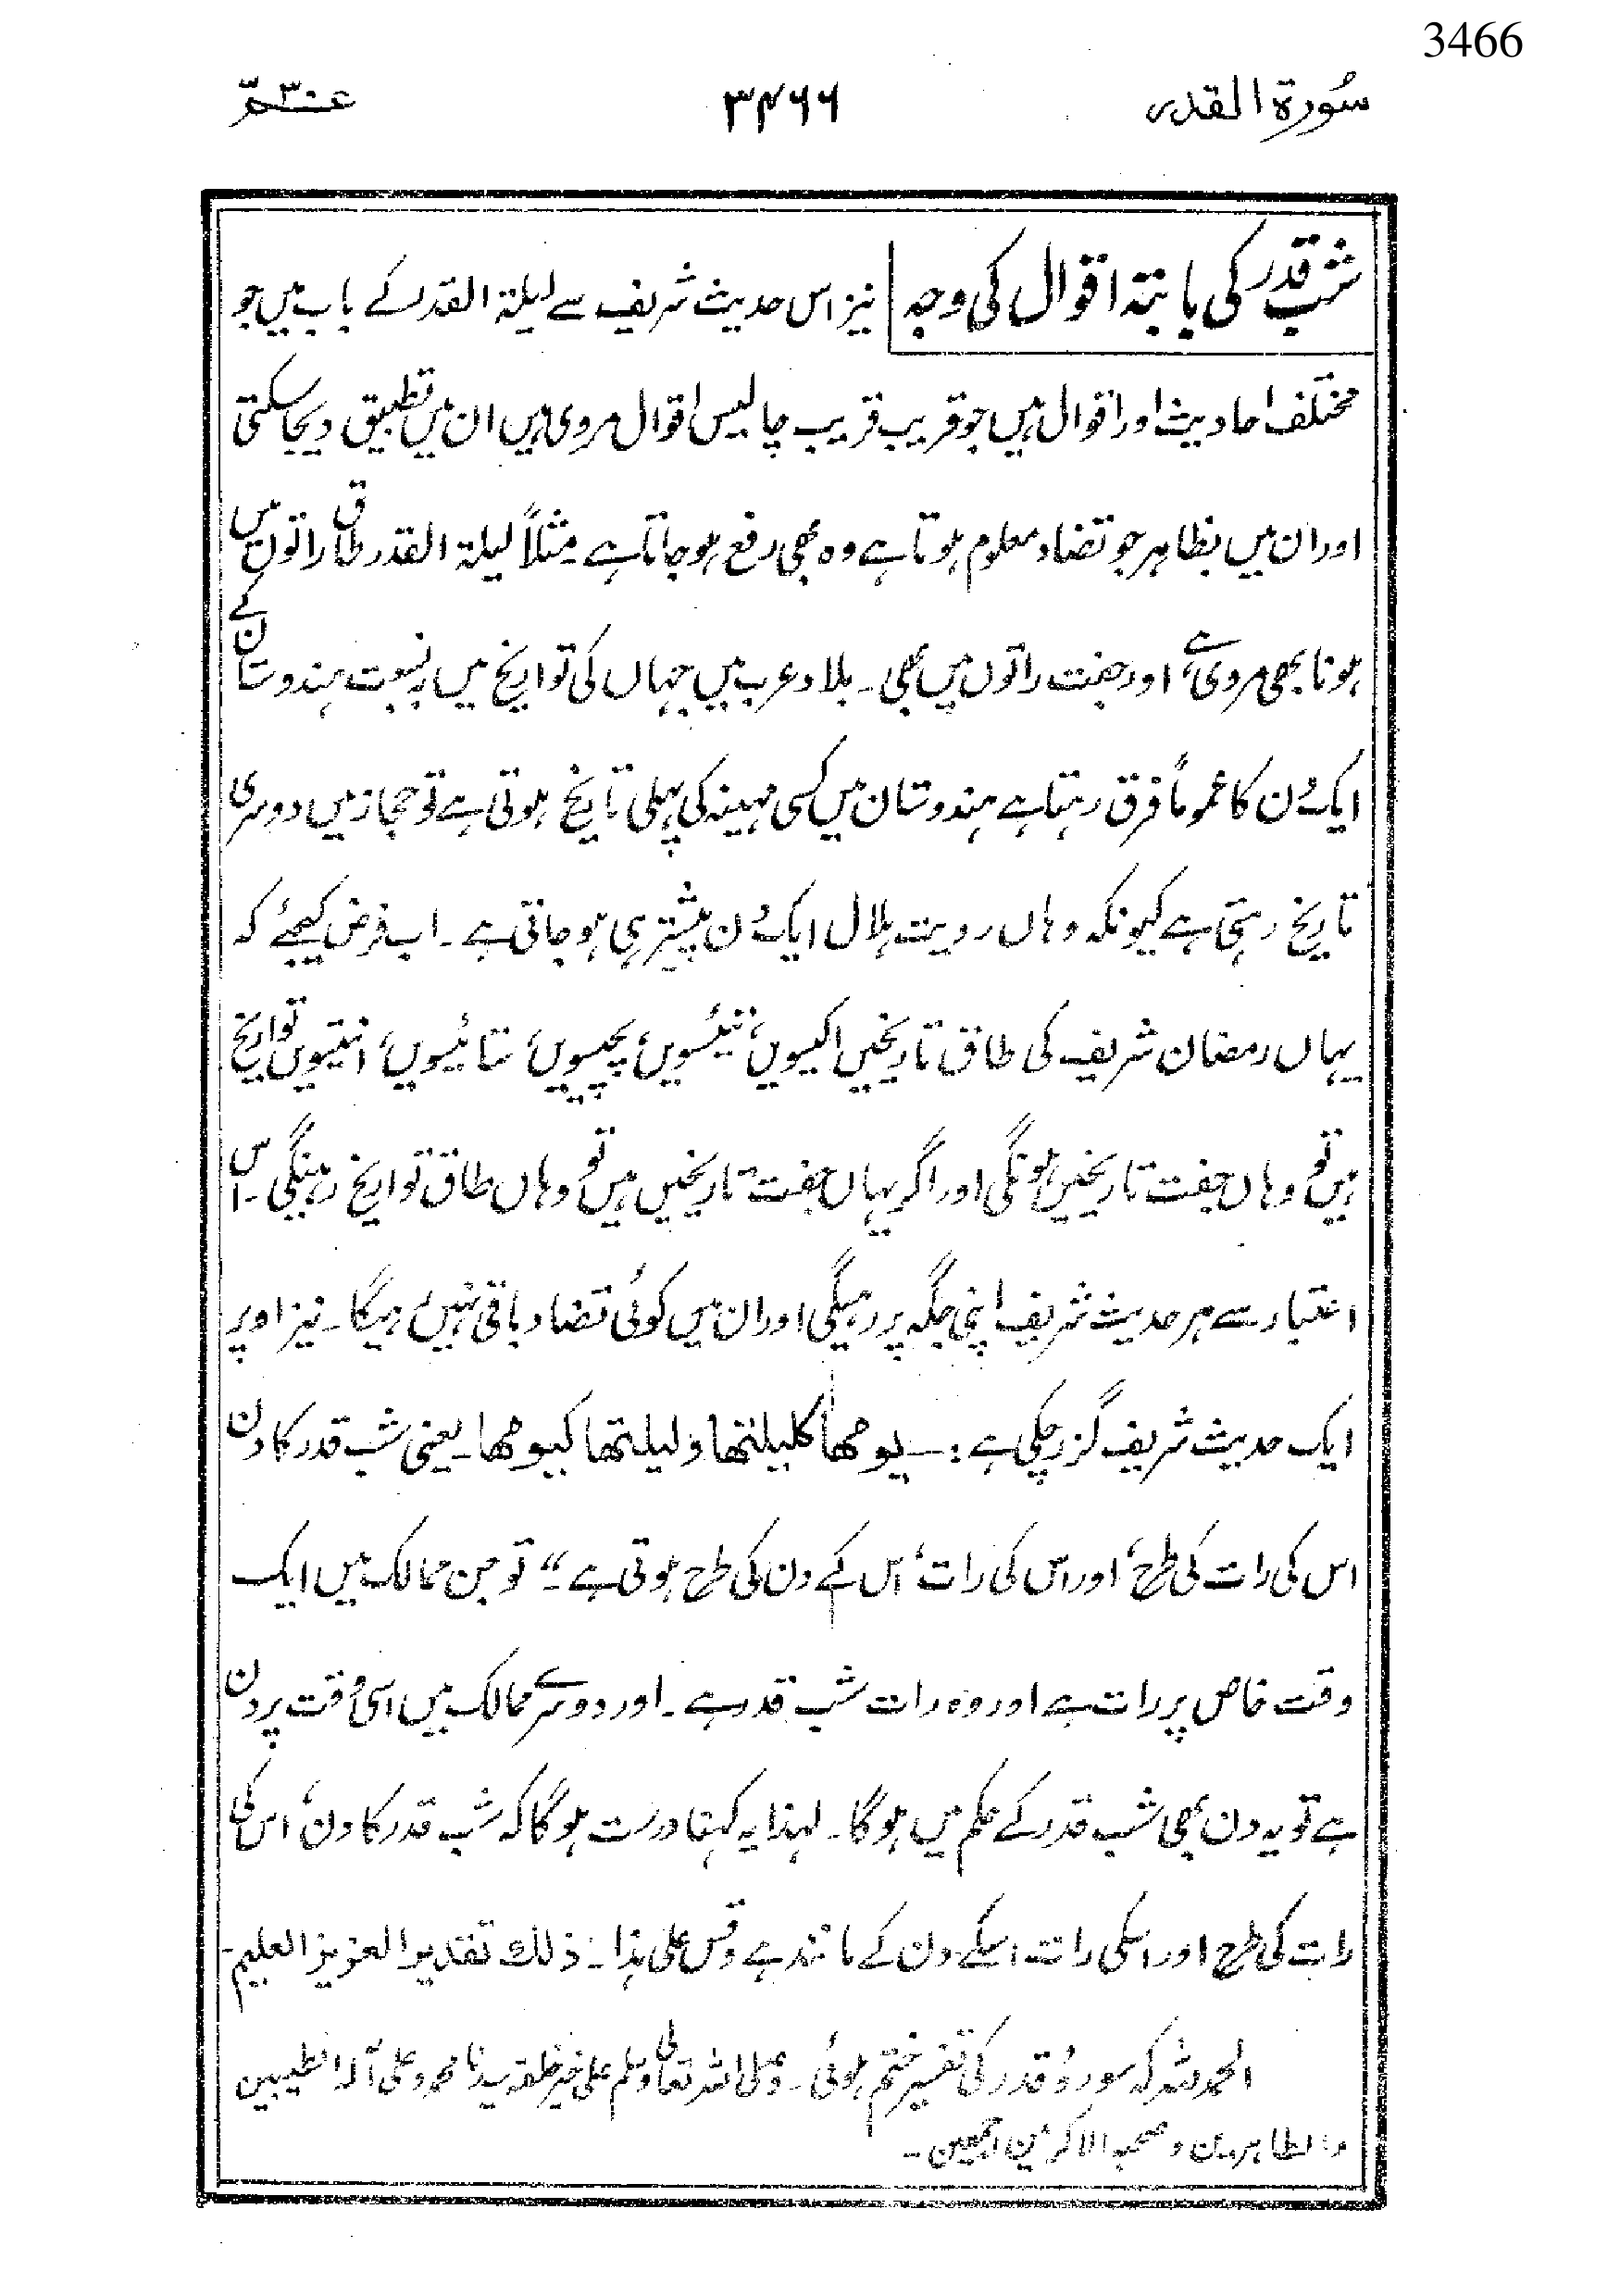 3466
سُورة القدر ۳۴۶۶ عمّ ۳۰
شب قدر کی بابتہ اقوال کی وجہ نیز اس حدیث شریف سے لیلۃ القدر کے باب میں جو
مختلف احادیث اور اقوال ہیں جو قریب قریب چالیس اقوال مروی ہیں ان میں تطبیق دیجاسکتی
اور ان میں بظاہر جو تضاد معلوم ہوتا ہے وہ بھی رفع ہو جاتا ہے ۔ مثلاً لیلۃ القدر طاق راتوں میں
ہونا بھی مروی ہے، اور جفت راتوں میں بھی ۔ بلاد عرب میں جہاں کی تواریخ میں بہ نسبت ہندوستان کے
ایک دن کا عموماً فرق رہتا ہے ہندوستان میں کسی مہینہ کی پہلی تاریخ ہوتی ہے تو حجاز میں دوسری
تاریخ رہتی ہے کیونکہ وہاں رویت ہلال ایک دن پیشتر ہی ہو جاتی ہے ۔ اب فرض کیجئے کہ
یہاں رمضان شریف کی طاق تاریخیں اکیسویں، تیئسویں، پچیسویں، ستائیسویں، انتیسویں تواریخ
ہیں تو وہاں جفت تاریخیں ہونگی اور اگر یہاں جفت تاریخیں ہیں تو وہاں طاق تواریخ رہینگی ۔ اس
اعتبار سے ہر حدیث شریف اپنی جگہ پر رہیگی اور ان میں کوئی تضاد باقی نہیں رہیگا ۔ نیز اوپر
ایک حدیث شریف گزر چکی ہے :۔ یومھا کلیلتھا ولیلتھا کیومھا ۔ یعنی شب قدر کا دن
اس کی رات کی طرح، اور اس کی رات، اس کے دن کی طرح ہوتی ہے ۔“ تو جن ممالک میں ایک
وقت خاص پر رات ہے اور وہ رات شب قدر ہے ۔ اور دوسرے ممالک میں اسی وقت پر دن
ہے تو یہ دن بھی شب قدر کے حکم میں ہوگا ۔ لہذا یہ کہنا درست ہوگا کہ شب قدر کا دن، اس کی
رات کی طرح اور اسکی رات اسکے دن کے مانند ہے وقس علی ہذا ۔ ذلك تقدیر العزیز العلیم ۔
الحمد للہ کہ سورۂ قدر کی تفسیر ختم ہوئی ۔ وصلی اللہ تعالی وسلم علی خیر خلقہ سیدنا محمد وعلی آلہ الطیبین
والطاہرین وصحبہ الاکرمین اجمعین ۔